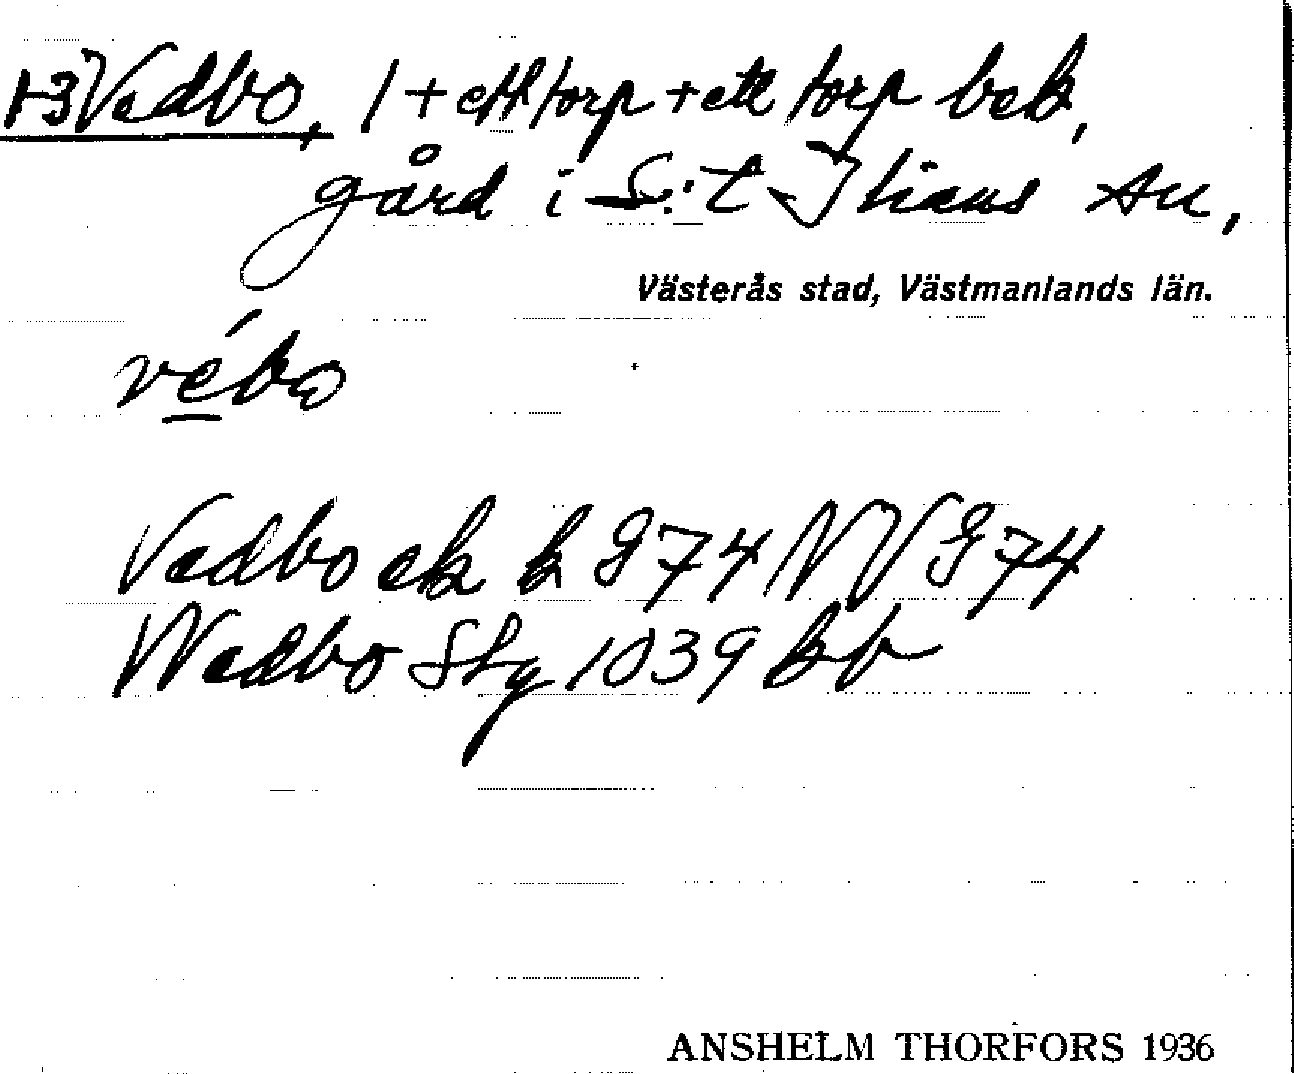 1-3 Vedbo, 1 + ett torp + ett torp beb,
gård i S:t Ilians sn,
Västerås stad, Västmanlands län.
vébo
Vedbo ek h 974 NV 974
Wedbo Skg 1039 bb
ANSHELM THORFORS 1936